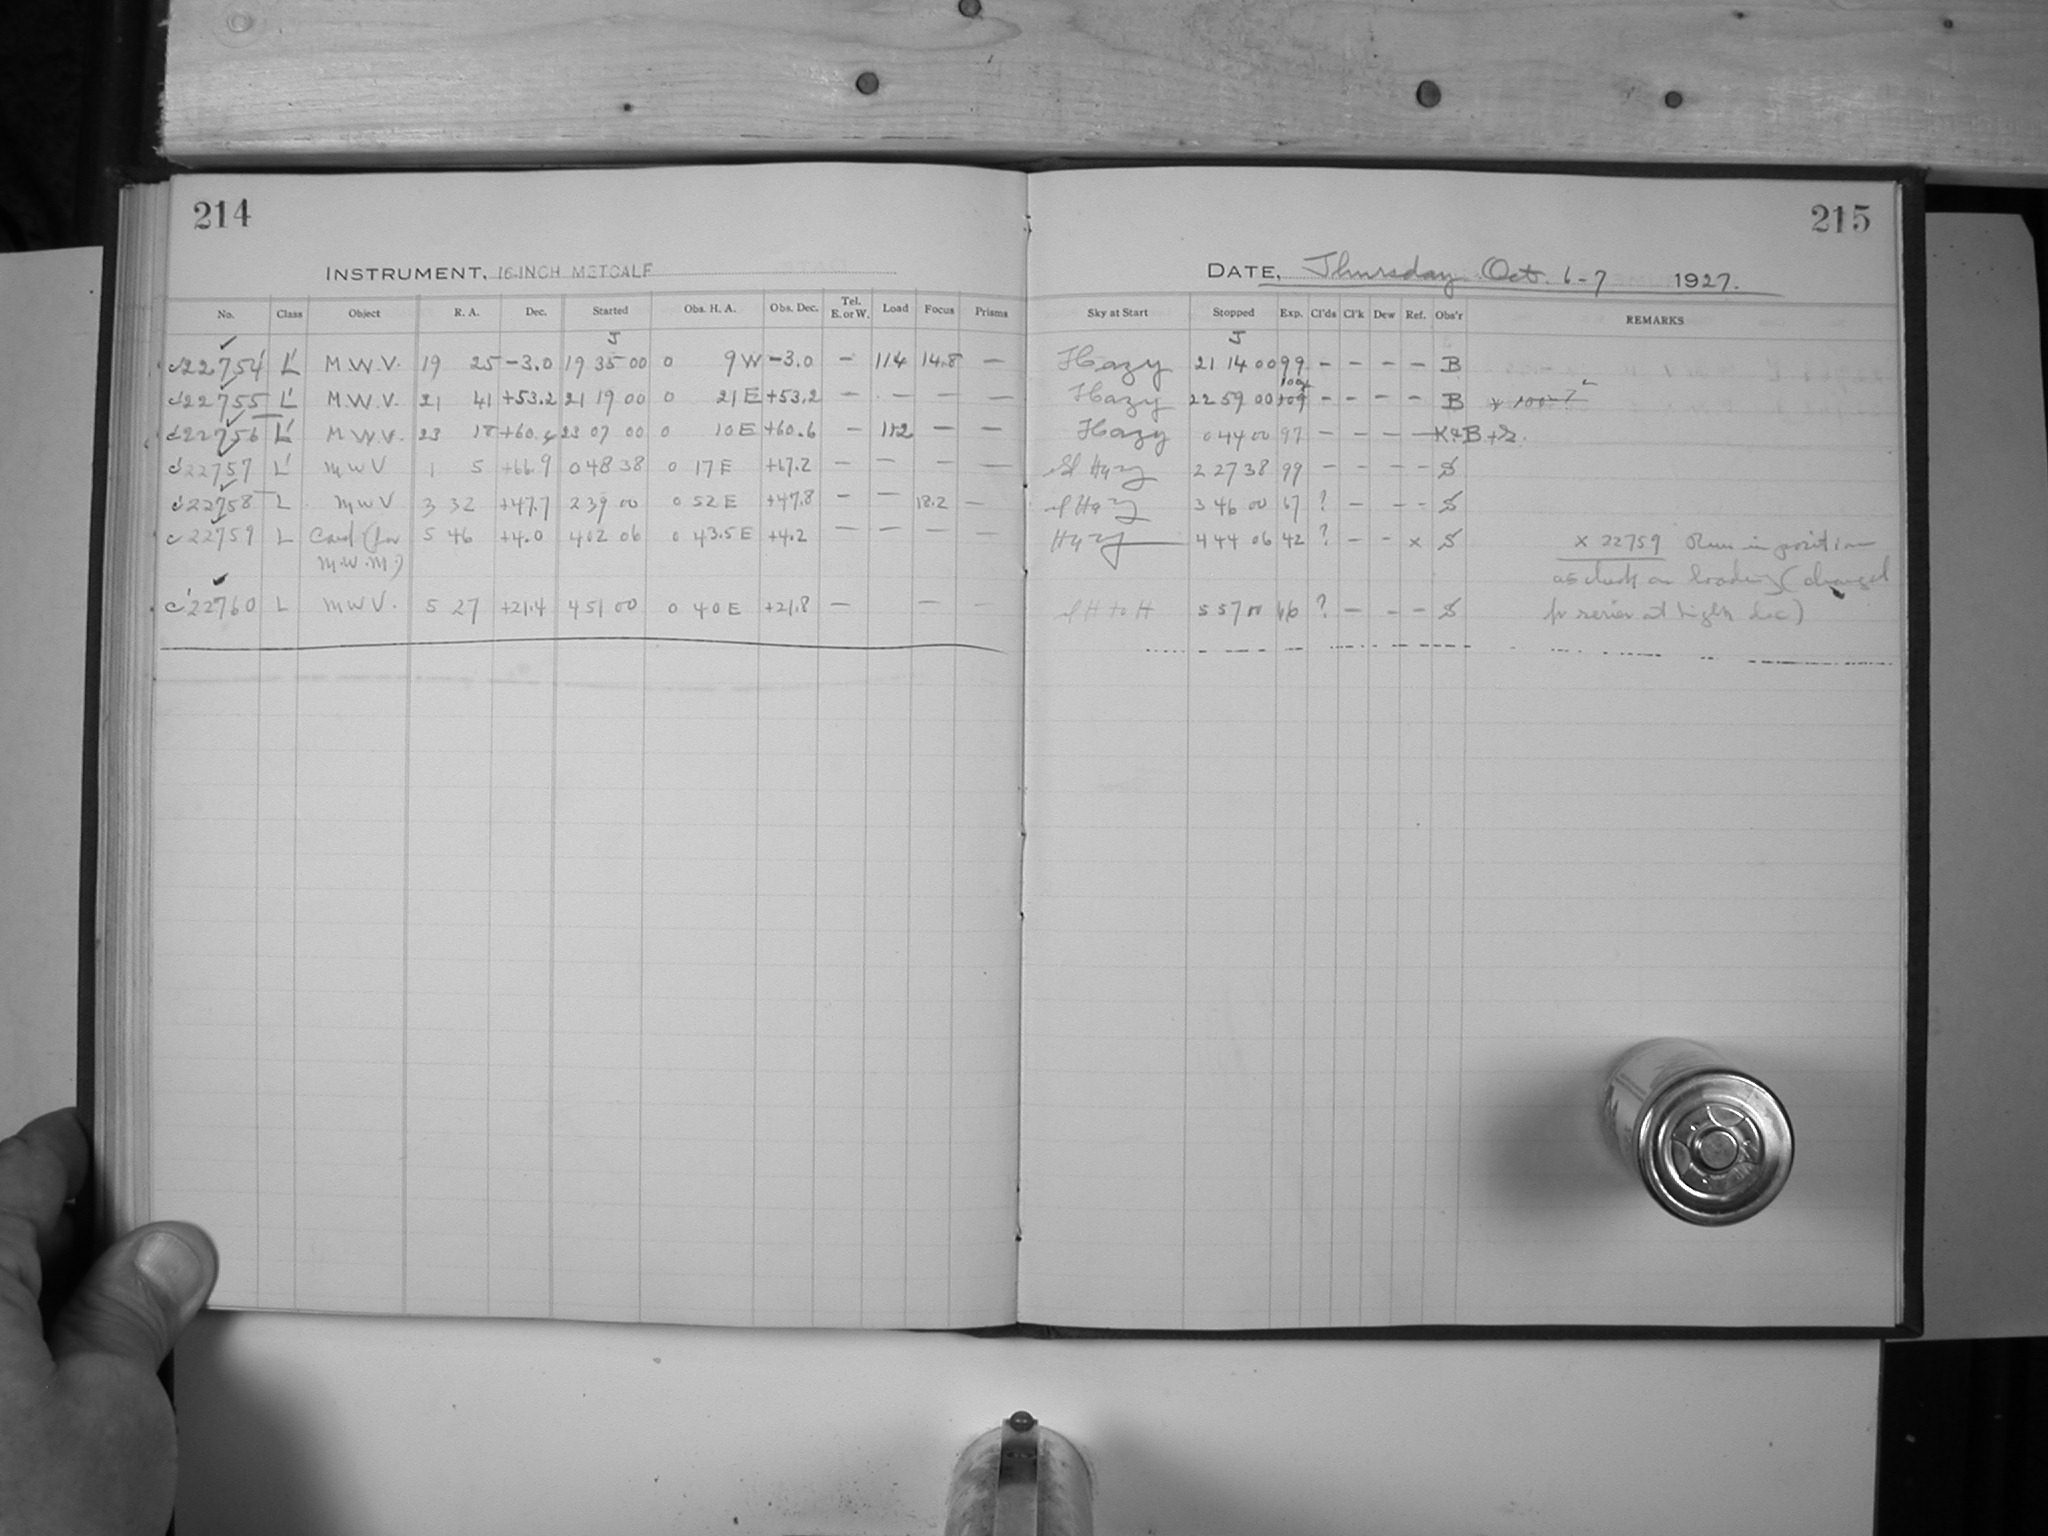 214
215
INSTRUMENT, 16-INCH METCALF
DATE, Thursday Oct. 6-7 1927.
No. Class Object R. A. Dec. Started Obs. H. A. Obs. Dec. Tel. E. or W. Load Focus Prisms Sky at Start Stopped Exp. Cl'ds Cl'k Dew Ref. Obs'r REMARKS
J J
22754 L' M.W.V. 19 25 -3.0 19 35 00 0 9 W -3.0 - 114 14.8 - Hazy 21 14 00 99 - - - - B
22755 L' M.W.V. 21 41 +53.2 21 19 00 0 21 E +53.2 - - - - Hazy 22 59 00 - - - - B
22756 L' M.W.V. 23 18 +60.4 23 07 00 0 10 E +60.6 - 112 - - Hazy 0 44 00 97 - - - - K+B
22757 L' MWV 1 5 +66.9 0 48 38 0 17 E +67.2 - - - - Sl Hazy 2 27 38 99 - - - - S
22758 L MWV 3 32 +47.7 2 39 00 0 52 E +47.8 - - 18.2 - Sl Hazy 3 46 00 67 ? - - - S
22759 L 5 46 +4.0 4 02 06 0 43.5 E +4.2 - - - - Hazy 4 44 06 42 ? - - x S x 22759 Run in position
M.W.M.) as check on loading (changed
22760 L MWV. 5 27 +21.4 4 51 00 0 40 E +21.8 - - - Sl H to H 5 57 00 66 ? - - - S for series at high dec)